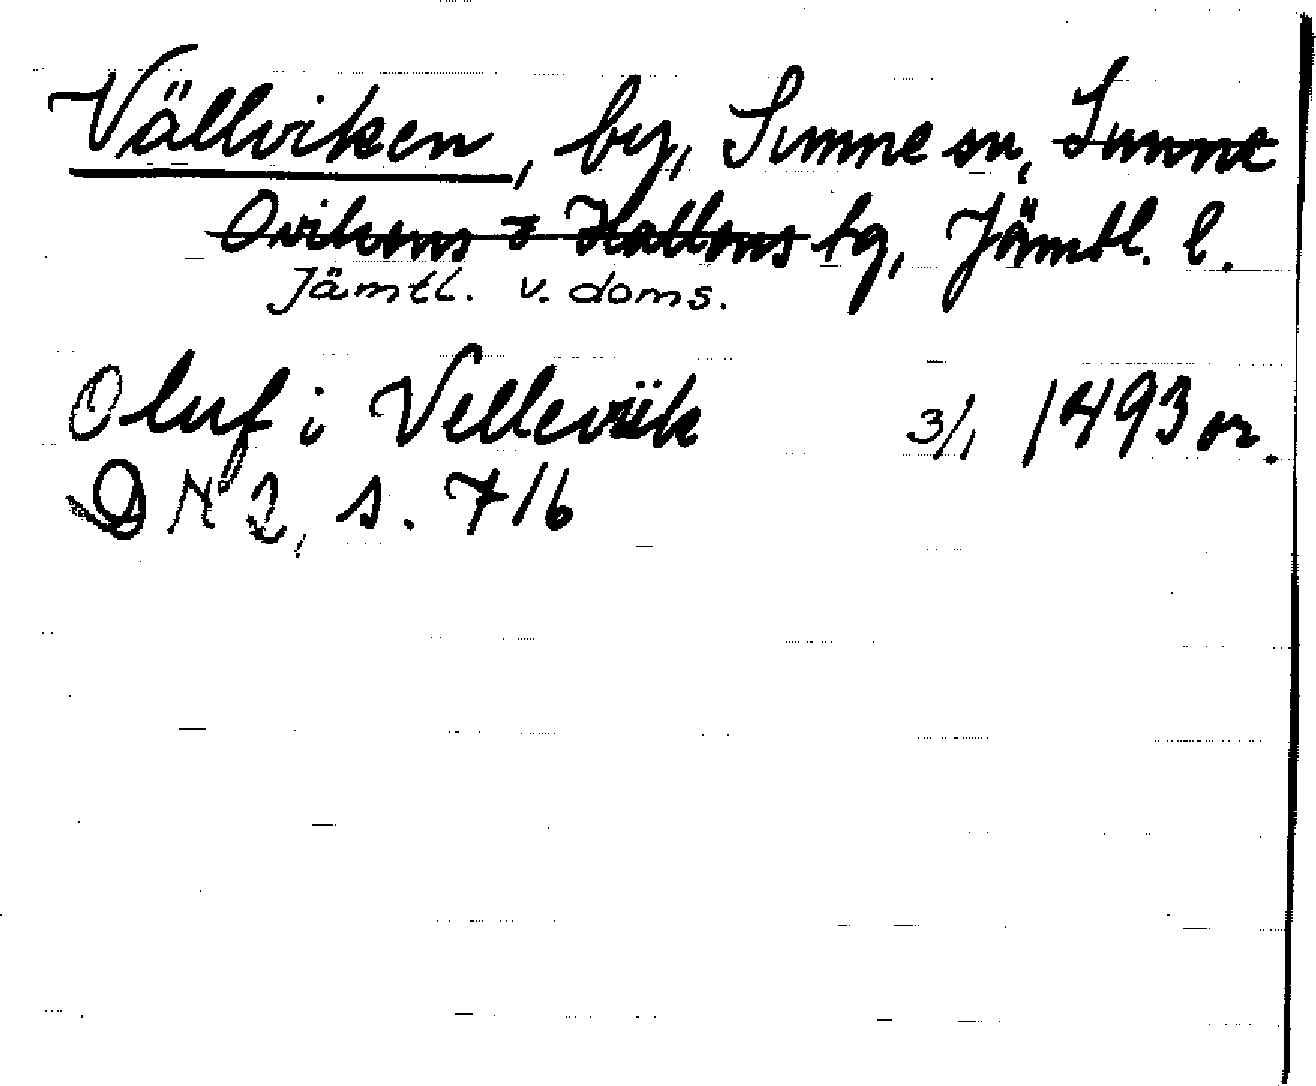 Vällviken, by, Sunne sn, Sunne
Ovikens o Hallens tg, Jämtl. l.
Jämtl. v. doms.
Oluf i Vellewiik 3/1 1493 or.
DN 2, s. 716